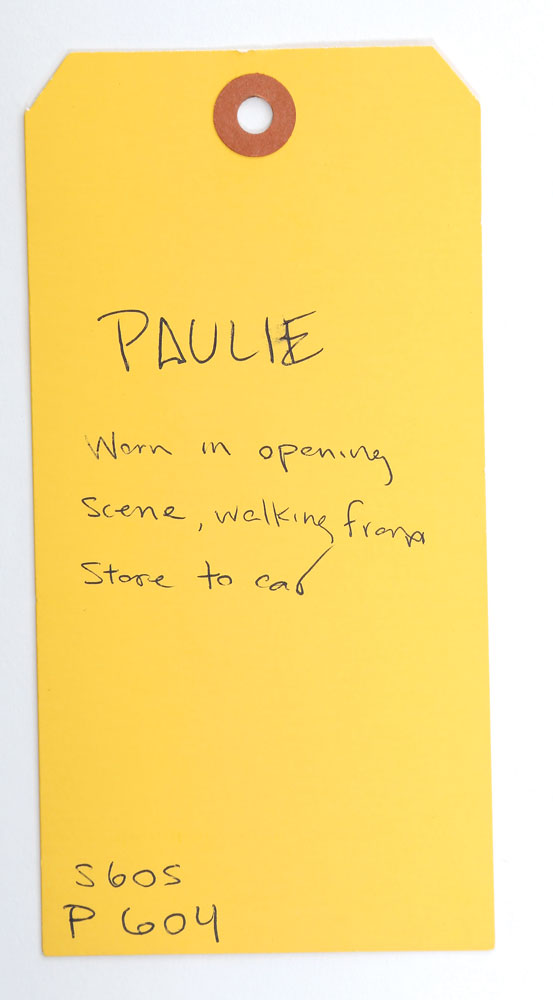 PAULIE
Worn in opening
Scene, walking from
Store to car
S605
P 604